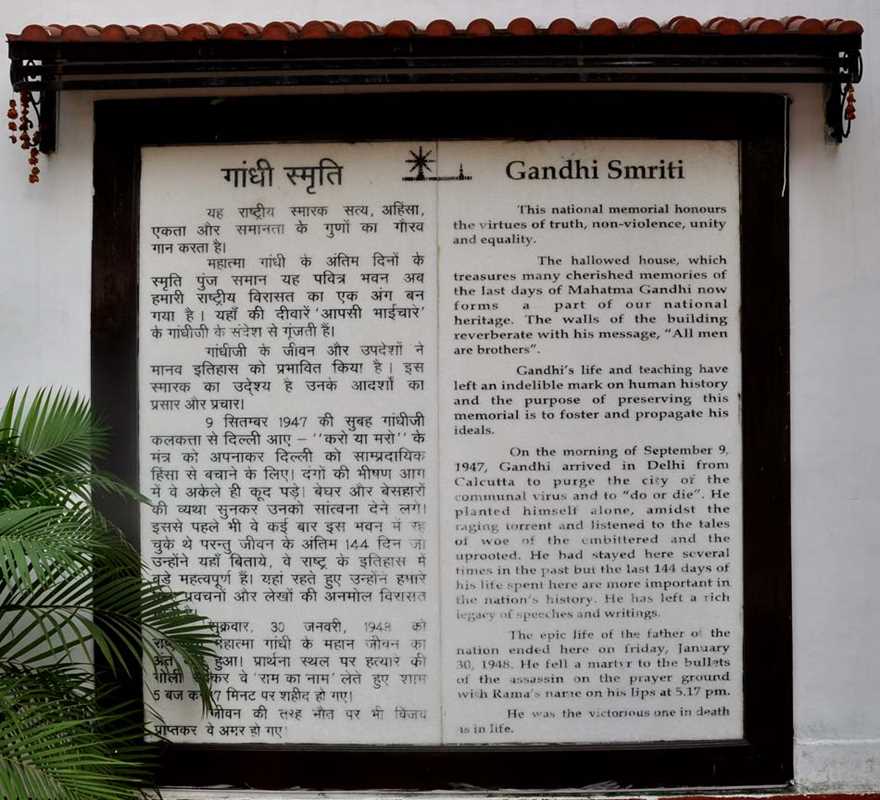 गांधी स्मृति
यह राष्ट्रीय स्मारक सत्य, अहिंसा,
एकता और समानता के गुणों का गौरव
गान करता है।
महात्मा गांधी के अंतिम दिनों के
स्मृति पुंज समान यह पवित्र भवन अब
हमारी राष्ट्रीय विरासत का एक अंग बन
गया है। यहाँ की दीवारें 'आपसी भाईचारे'
के गांधीजी के संदेश से गूंजती हैं।
गांधीजी के जीवन और उपदेशों ने
मानव इतिहास को प्रभावित किया है। इस
स्मारक का उद्देश्य है उनके आदर्शों का
प्रसार और प्रचार।
9 सितम्बर 1947 की सुबह गांधीजी
कलकत्ता से दिल्ली आए – ''करो या मरो'' के
मंत्र को अपनाकर दिल्ली को साम्प्रदायिक
हिंसा से बचाने के लिए। दंगों की भीषण आग
में वे अकेले ही कूद पड़े। बेघर और बेसहारों
की व्यथा सुनकर उनको सांत्वना देने लगे।
इससे पहले भी वे कई बार इस भवन में रह
चुके थे परन्तु जीवन के अंतिम 144 दिन जो
उन्होंने यहाँ बिताये, वे राष्ट्र के इतिहास में
बड़े महत्वपूर्ण हैं। यहां रहते हुए उन्होंने हमारे
प्रवचनों और लेखों की अनमोल विरासत
शुक्रवार, 30 जनवरी, 1948 को
महात्मा गांधी के महान जीवन का
अंत हुआ। प्रार्थना स्थल पर हत्यारे की
गोली कर वे 'राम का नाम' लेते हुए शाम
5 बज कर 17 मिनट पर शहीद हो गए।
जीवन की तरह मौत पर भी विजय
प्राप्तकर वे अमर हो गए
Gandhi Smriti
This national memorial honours
the virtues of truth, non-violence, unity
and equality.
The hallowed house, which
treasures many cherished memories of
the last days of Mahatma Gandhi now
forms a part of our national
heritage. The walls of the building
reverberate with his message, "All men
are brothers".
Gandhi's life and teaching have
left an indelible mark on human history
and the purpose of preserving this
memorial is to foster and propagate his
ideals.
On the morning of September 9,
1947, Gandhi arrived in Delhi from
Calcutta to purge the city of the
communal virus and to "do or die". He
planted himself alone, amidst the
raging torrent and listened to the tales
of woe of the embittered and the
uprooted. He had stayed here several
times in the past but the last 144 days of
his life spent here are more important in
the nation's history. He has left a rich
legacy of speeches and writings.
The epic life of the father of the
nation ended here on friday, January
30, 1948. He fell a martyr to the bullets
of the assassin on the prayer ground
with Rama's name on his lips at 5.17 pm.
He was the victorious one in death
as in life.